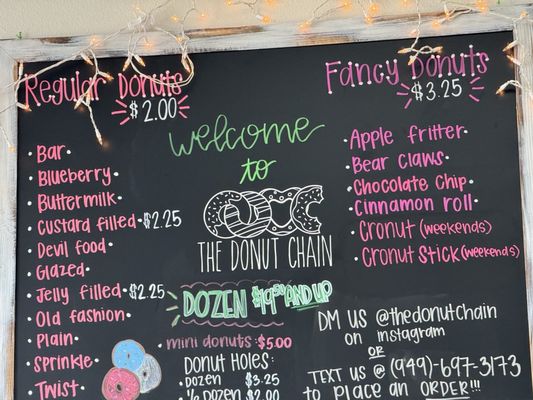 Regular Donuts
$2.00
• Bar •
• Blueberry •
• Buttermilk •
• Custard filled • $2.25
• Devil food •
• Glazed •
• Jelly filled • $2.25
• Old fashion •
• Plain •
• Sprinkle •
• Twist •
welcome
to
CDC
THE DONUT CHAIN
DOZEN $19.50 AND UP
• mini donuts: $5.00
Donut Holes:
• Dozen $3.25
• ½ Dozen $2.00
Fancy Donuts
$3.25
• Apple fritter •
• Bear claws •
• Chocolate Chip •
• Cinnamon roll •
• Cronut (weekends)
• Cronut Stick (weekends)
DM us @thedonutchain
on instagram
OR
Text us @ (949)-697-3173
to place an ORDER!!!